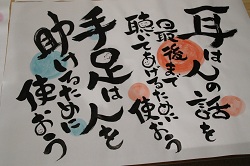 耳は人の話を
最後まで
聴いてあげるために
使おう
手足は人を
助けるために
使おう